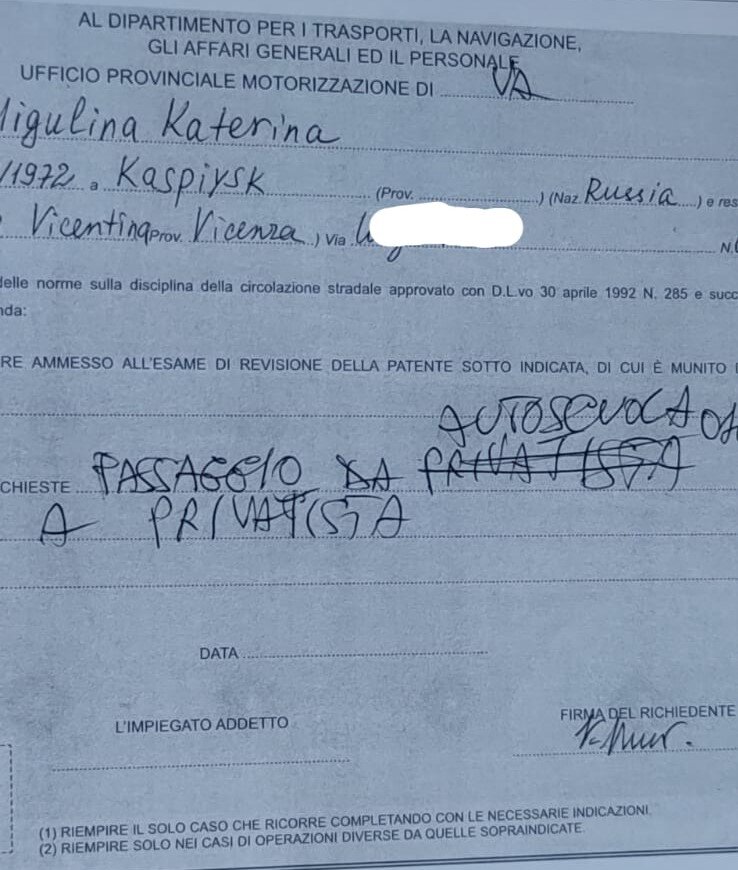 AL DIPARTIMENTO PER I TRASPORTI, LA NAVIGAZIONE,
GLI AFFARI GENERALI ED IL PERSONALE
UFFICIO PROVINCIALE MOTORIZZAZIONE DI VA
Migulina Katerina
/1972 a Kaspiysk (Prov. ) (Naz. Russia ) e res
Vicentina Prov. Vicenza ) Via N.
delle norme sulla disciplina della circolazione stradale approvato con D.L.vo 30 aprile 1992 N. 285 e succ
nda:
RE AMMESSO ALL'ESAME DI REVISIONE DELLA PATENTE SOTTO INDICATA, DI CUI È MUNITO
AUTOSCUOLA
CHIESTE PASSAGGIO DA PRIVATISTA
A PRIVATISTA
DATA
L'IMPIEGATO ADDETTO
FIRMA DEL RICHIEDENTE
(1) RIEMPIRE IL SOLO CASO CHE RICORRE COMPLETANDO CON LE NECESSARIE INDICAZIONI.
(2) RIEMPIRE SOLO NEI CASI DI OPERAZIONI DIVERSE DA QUELLE SOPRAINDICATE.